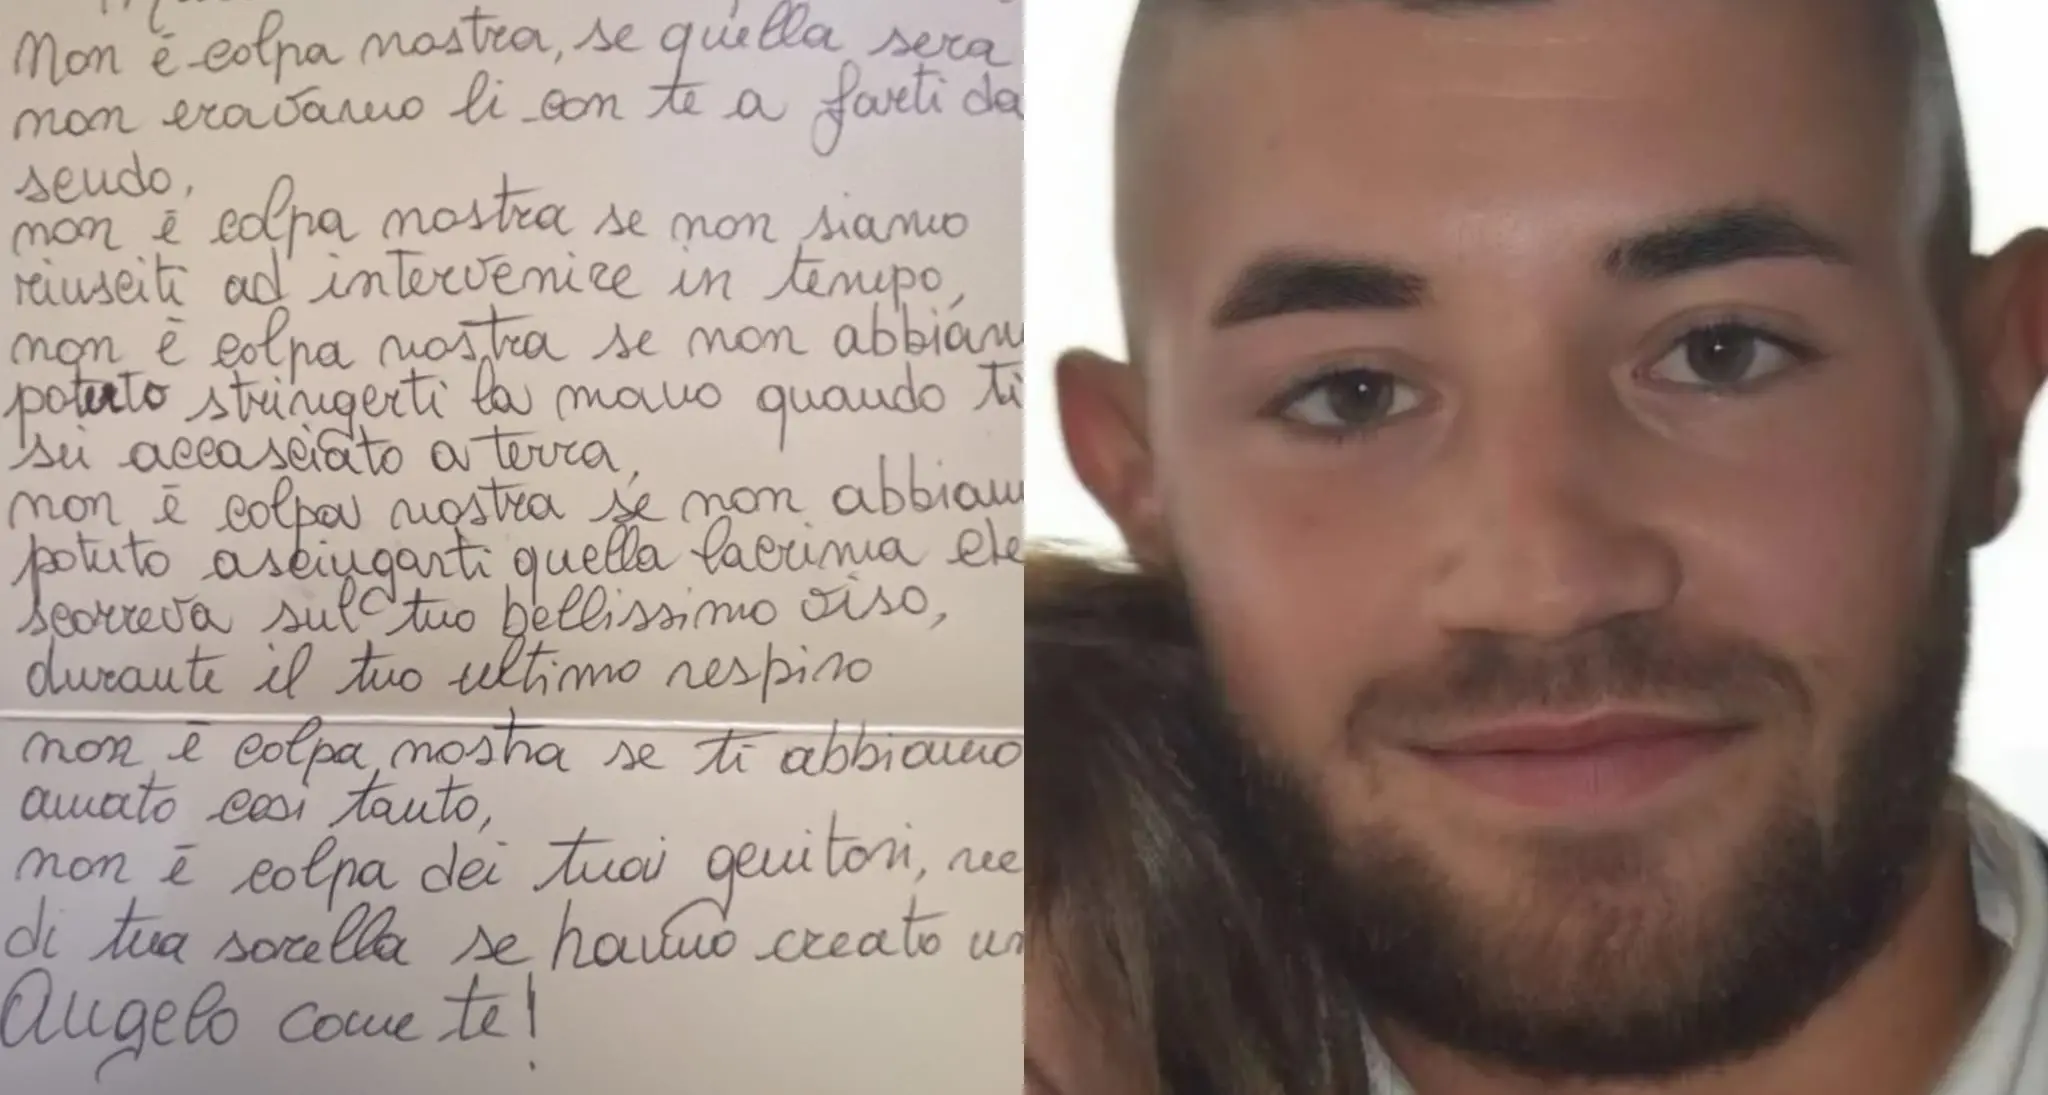 Non è colpa nostra, se quella sera
non eravamo li con te a farti da
scudo,
non è colpa nostra se non siamo
riusciti ad intervenire in tempo,
non è colpa nostra se non abbiam
potuto stringerti la mano quando ti
sei accasciato a terra,
non è colpa nostra se non abbiam
potuto asciugarti quella lacrima che
scorreva sul tuo bellissimo viso,
durante il tuo ultimo respiro
non è colpa nostra se ti abbiamo
amato così tanto,
non è colpa dei tuoi genitori, ne
di tua sorella se hanno creato un
Angelo come te!